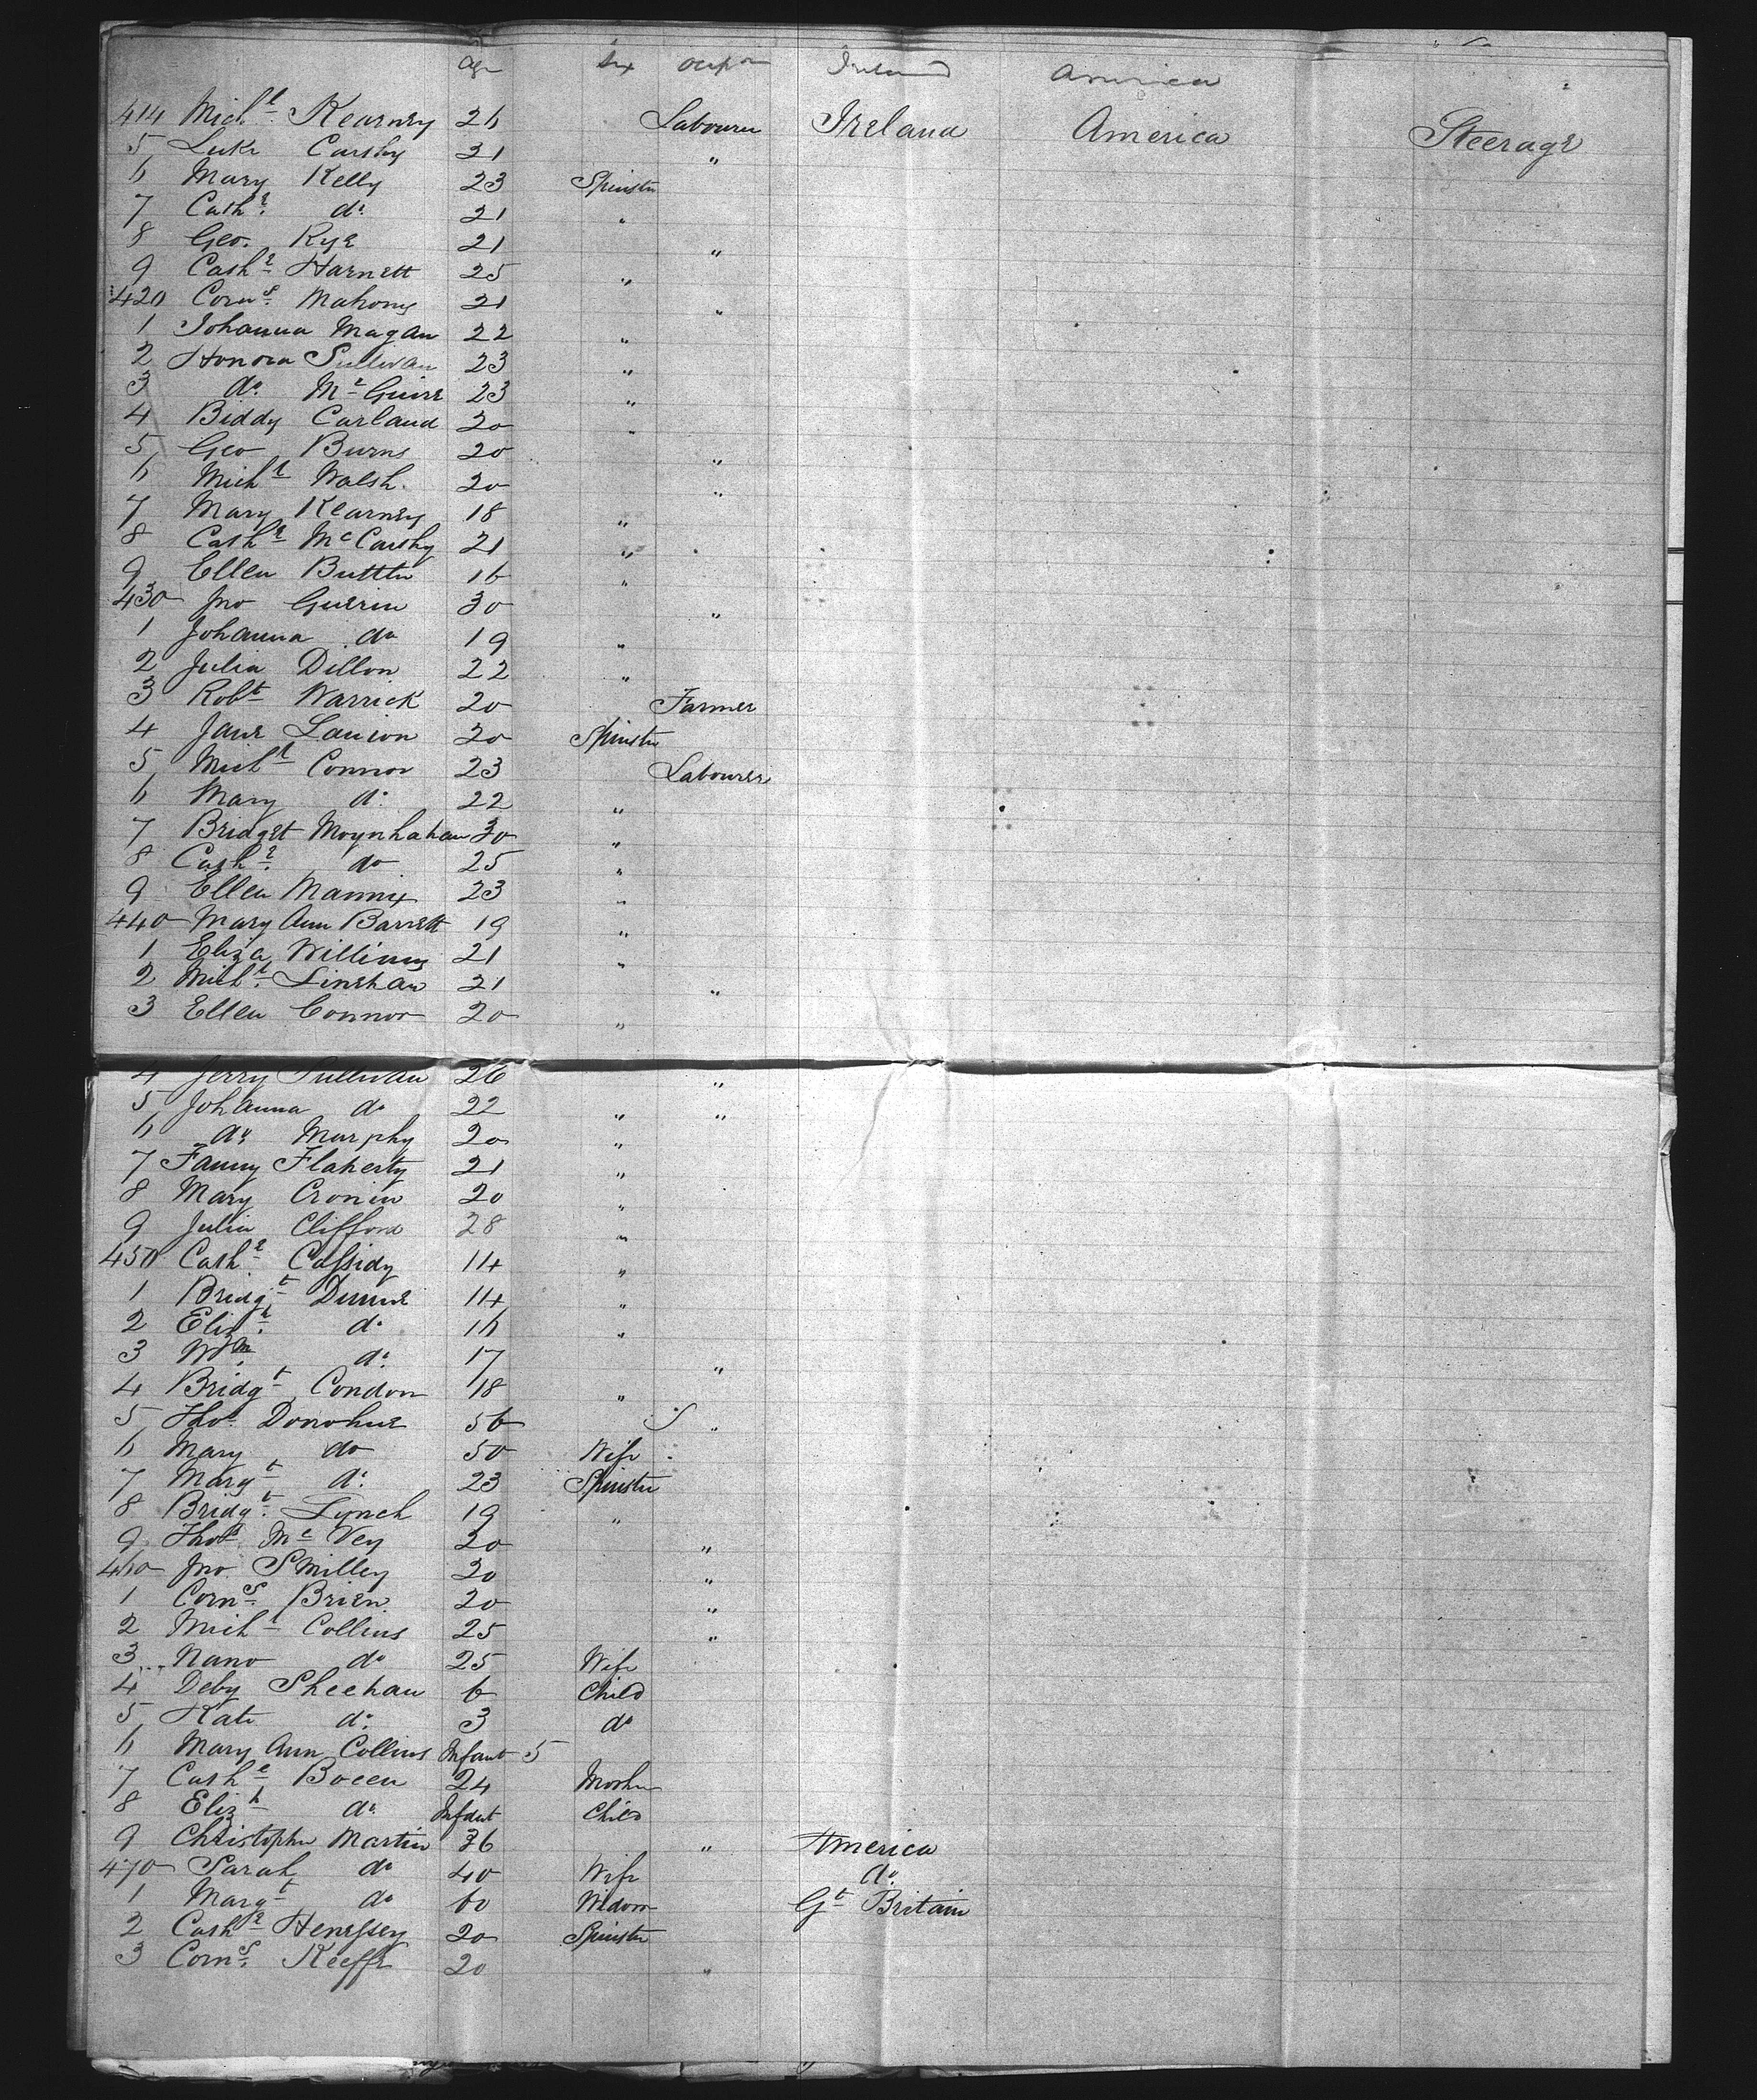 Age Sex Occupn Ireland America
414 Michl Kearney 26 Labourer Ireland America Steerage
5 Luke Carthy 21 "
6 Mary Kelly 23 Spinster
7 Cathe do 21 "
8 Geo. Rye 21 "
9 Cathe Harnett 25 "
420 Corns Mahony 21 "
1 Johanna Magan 22 "
2 Honora Sullivan 23 "
3 do Mc Guire 23 "
4 Biddy Carland 20 "
5 Geo Burns 20 "
6 Michl Walsh 20 "
7 Mary Kearney 18 "
8 Cathe McCarthy 21 "
9 Ellen Buttler 16 "
430 Jno Guerin 30 "
1 Johanna do 19 "
2 Julia Dillon 22 "
3 Robt Warrick 20 Farmer
4 Jane 20 Spinster
5 Michl Connor 23 Labourer
6 Mary do 22 "
7 Bridget Moynhahan 30 "
8 Cathe do 25 "
9 Ellen Mannix 23 "
440 Mary Ann Barrett 19 "
1 Eliza Williams 21 "
2 Michl Linehan 21 "
3 Ellen Connor 20 "
4 Jerry Sullivan 26 "
5 Johanna do 22 " "
6 do Murphy 20 "
7 Fanny Flaherty 21 "
8 Mary Cronin 20 "
9 Julia Clifford 28 "
450 Cathe Cassidy 14 "
1 Bridgt Dunne 14 "
2 Elizh do 16 "
3 Wm do 17 "
4 Bridgt Condon 18 "
5 Thos Donohue 56 "
6 Mary do 50 Wife
7 Margt do 23 Spinster
8 Bridgt Lynch 19 "
9 Thos Mc Vey 20 "
460 Jno. Smilley 20 "
1 Corns Brien 20 "
2 Michl Collins 25 "
3 Nano do 25 Wife
4 Deby Sheehan 6 Child
5 Kate do 3 do
6 Mary Ann Collins Infant 5
7 Cathe 24 Mother
8 Elizh do Infant Child
9 Christopher Martin 36 " America
470 Sarah do 40 Wife do
1 Margt do 60 Widow Gt Britain
2 Cathe Henessey 20 Spinster
3 Corns Keeffe 20 "